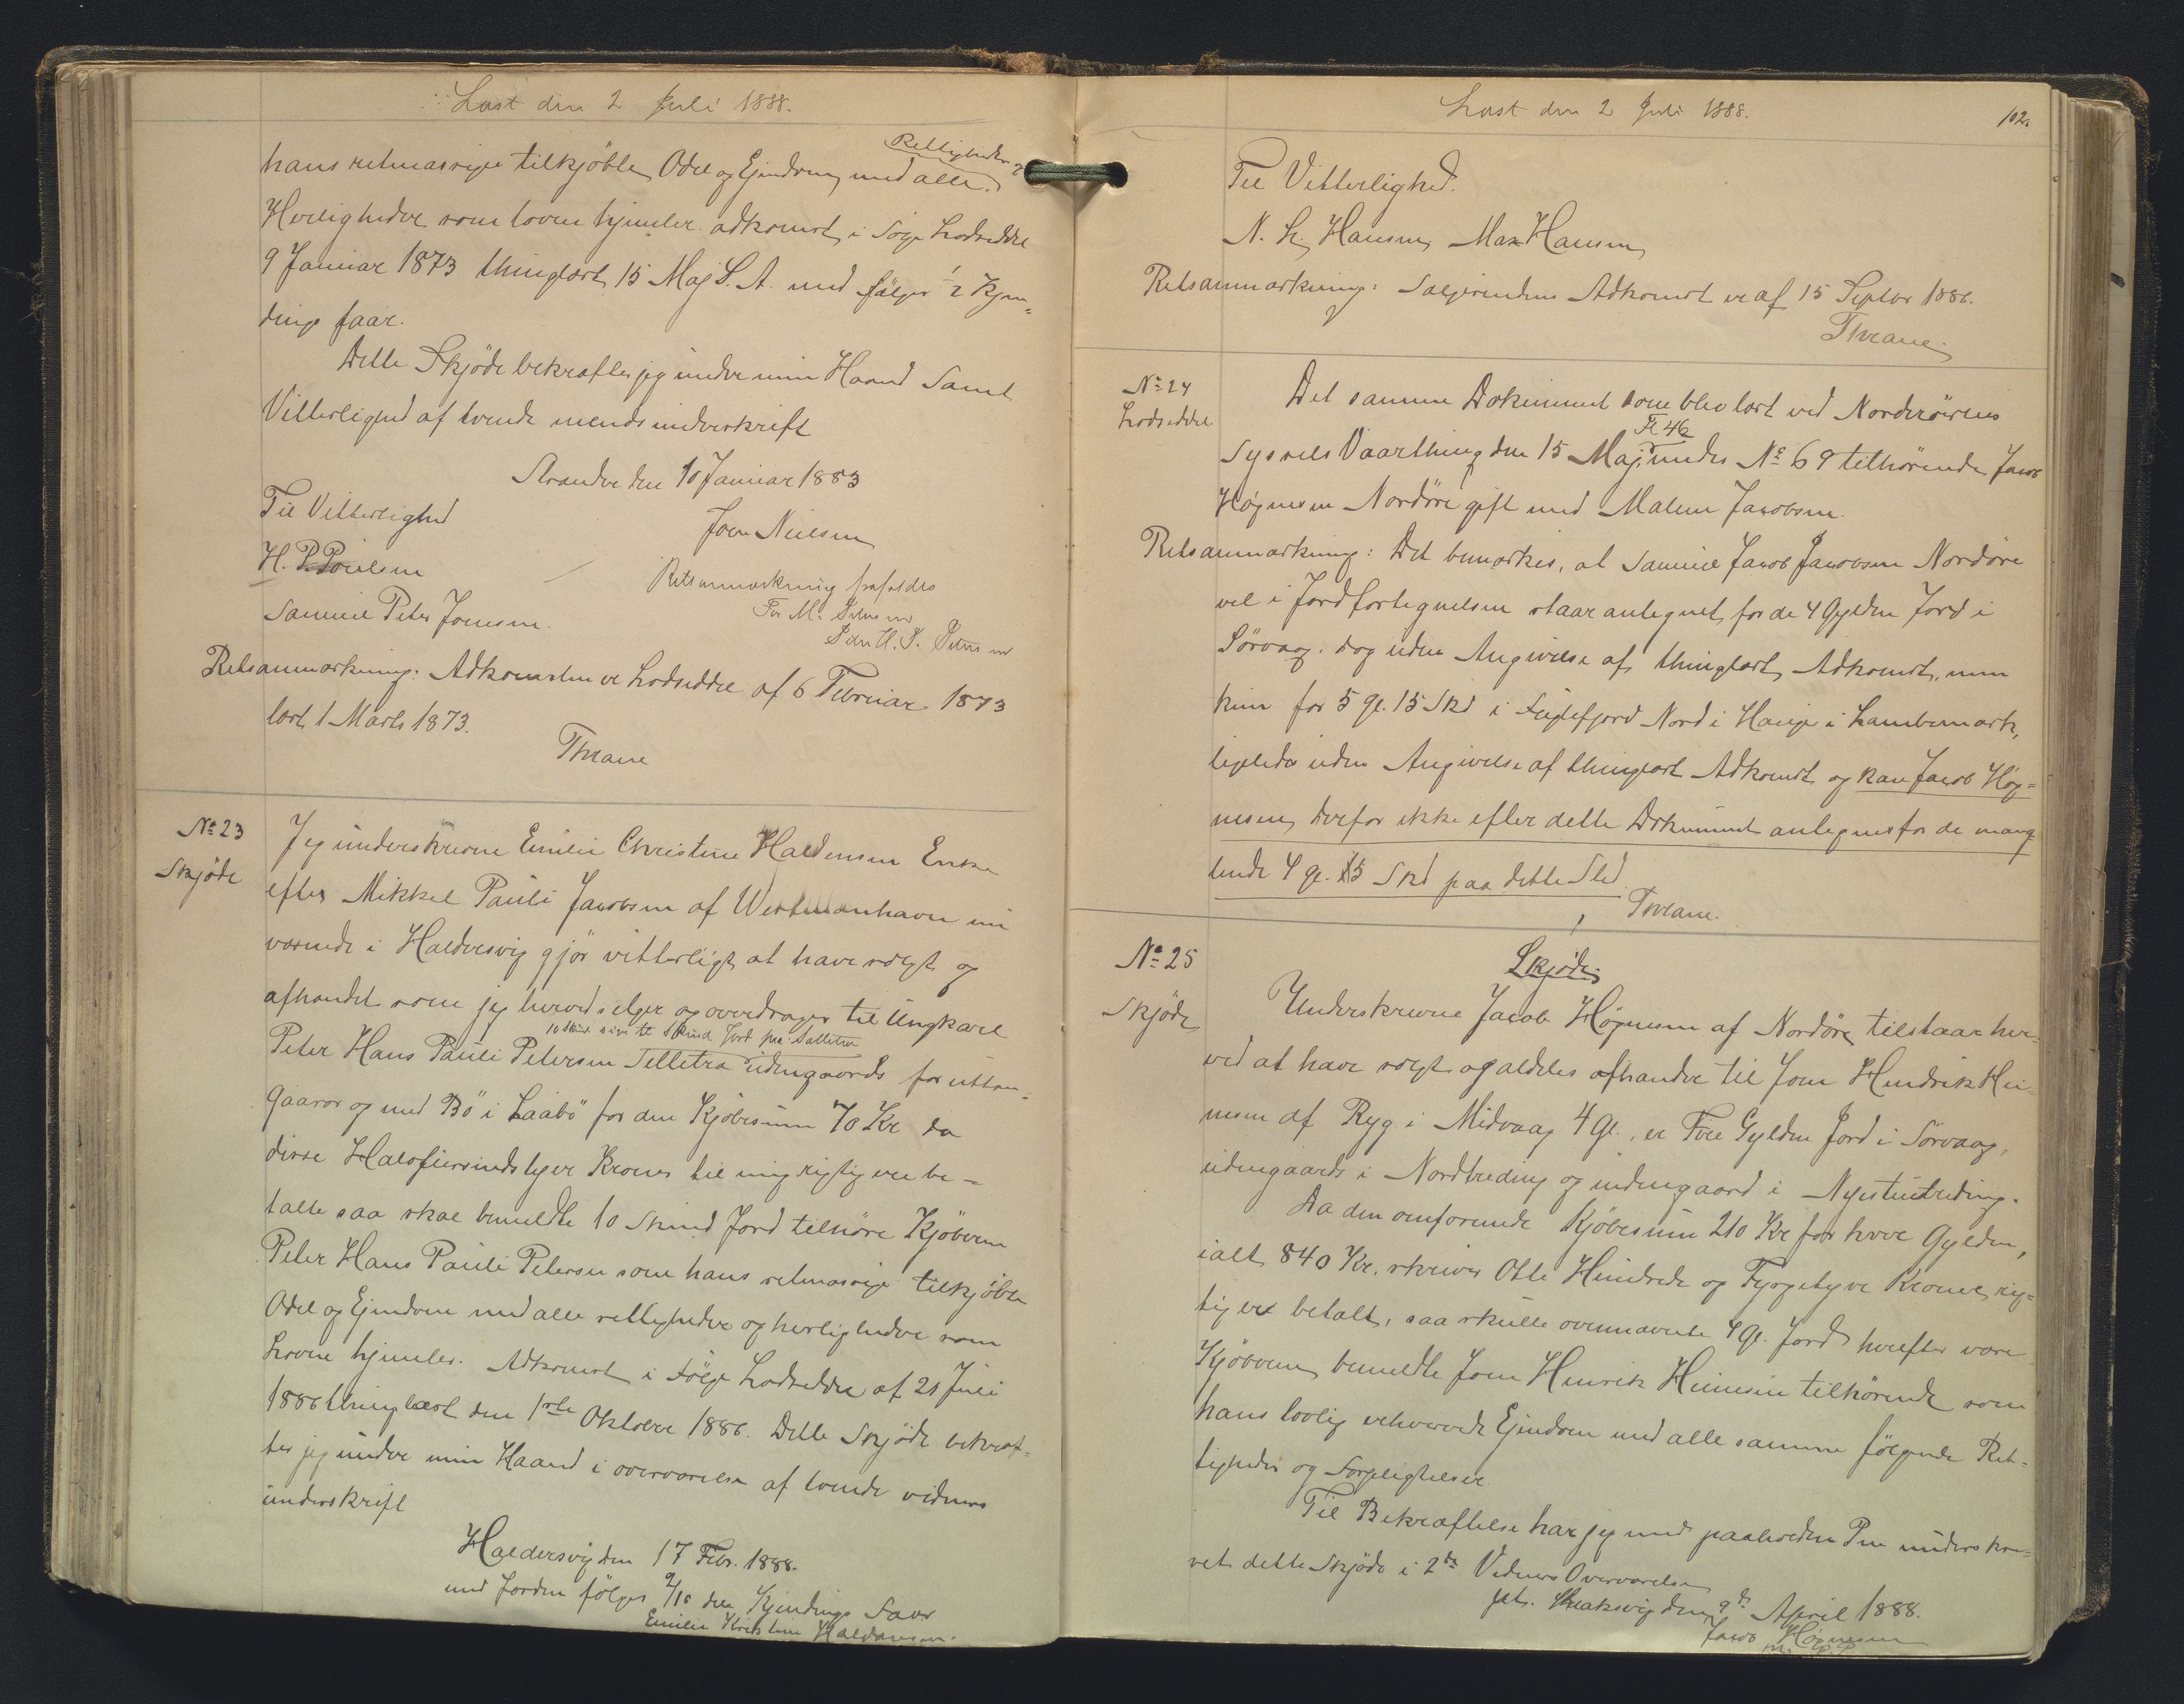 Læst den 2 Juli 1888.
hans retmæssige tilkjöbte Odel og Ejendom med alle Rettigheder og
Herligheder som loven hjemler adkomst i følge Lodseddel
9 Januar 1873 thinglæst 15 Maj S. A. med fölger 1/2 Kjen-
dings faar.
Dette Skjöde bekræfter jeg under min Haand Samt
Vitterlighed af tvende mends underskrift
Strander den 10 Januar 1883
Til Vitterlighed
Joen Nielsen
H. P. Poulsen
Retsanmærkning frafaldes
Samuel Peter Joensen.
For M. Petersen
Peder H. P. Petersen
Retsanmærkning: Adkomsten er Lodseddel af 6 Februar 1873
læst 1 Marts 1873.
Thrane
No 23
Skjöde
Jeg underskrevne Emilie Christine Haldensen Enke
efter Mikkel Pauli Jacobsen af Westmanhavn nu
værende i Haldersvig gjör vitterligt at have solgt og
afhændet som jeg herved selger og overdrager til Ungkarl
10 Skind siger ti Skind Jord paa Sattetra
Peter Hans Pauli Petersen Selletra udengaards for uttan-
gaaror og med Bö i Laabö for den Kjöbesum 70 Kr da
disse Halvfjersindstyve Kroner til mig rigtig ere be-
talte saa skal bemeldte 10 Skind Jord tilhöre Kjöberen
Peter Hans Pauli Petersen som hans retmæssige tilkjöbte
Odel og Ejendom med alle rettigheder og herligheder som
Loven hjemler. Adkomst i Fölge Lodseddel af 21 Juli
1886 thinglæst den 1ste Oktober 1886. Dette Skjöde bekræf-
ter jeg under min Haand i overværelse af tvende vidners
underskrift
Haldersvig den 17 Febr. 1888.
med Jorden fölger 9/10 del Kjendings Faar
Emilie Kristine Haldansen.
Læst den 2 Juli 1888.
102.
Til Vitterlighed.
N. L. Hansen, Max Hansen
Retsanmærkning: Sælgerindens Adkomst er af 15 Septbr 1886.
Thrane
No 24
Lodseddel
Det samme Dokument som blev læst ved Norderöernes
Fl 46
Syssels Vaarthing den 15 Maj under No 69 tilhørende Jacob
Høgnesen Nordöre gift med Malene Jacobsen.
Retsanmærkning: Det bemærkes, at Samuel Jacob Jacobsen Nordöre
vel i Jordfortegnelsen staar antegnet for de 4 Gylden Jord i
Sörvaag. dog uden Angivelse af thinglæst Adkomst, men
kun for 5 gl. 15 Skd i Fuglefjord Nord i Hauge i Lambemark,
ligeledes uden Angivelse af thinglæst Adkomst og kan Jacob Høg-
nesen, derfor ikke efter dette Dokument antegnes for de mang-
lende 4 gl. 15 Skd paa dette Sted
Thrane.
No 25
Skjöde
Skjøde
Underskrevne Jacob Högnesen af Nordöre tilstaar her-
ved at have solgt og aldeles afhændet til Joen Hendrik Hei-
nesen af Ryg i Midvaag 4 Gl., er Fire Gylden Jord i Sørvaag,
udengaards i Nordtreding og indengaard i Nyestutreding.
Da den omforenede Kjöbesum 210 Kr for hver Gylden,
ialt 840 Kr. skriver Otte Hundrede og Fyrgetyve Kroner, rig-
tig er betalt, saa skulle ovennævnte 4 Gl. Jord herefter være
Kjöberen, bemeldte Joen Henrik Heinesen tilhörende som
hans lovlig erhvervede Ejendom med alle samme fölgende Ret-
tigheder og Forpligtelser
Til Bekræftelse har jeg med paaholden Pen underskre-
vet dette Skjöde i 2de Vidners Overværelse
pt. Klaksvig den 9de April 1888.
Jacob Høgnesen
m. p. P.